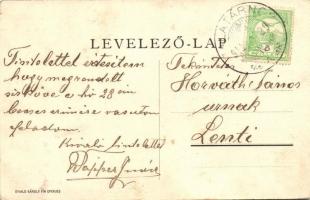 LEVELEZŐ-LAP
Tisztelettel értesítem
hogy megrendelt
a hó 28án
becses címére vasuton
feladtam.
Kiváló tisztelettel
Tekintetes
Horváth János
urnak
Lenti
DIVALD KÁROLY FIA EPERJES